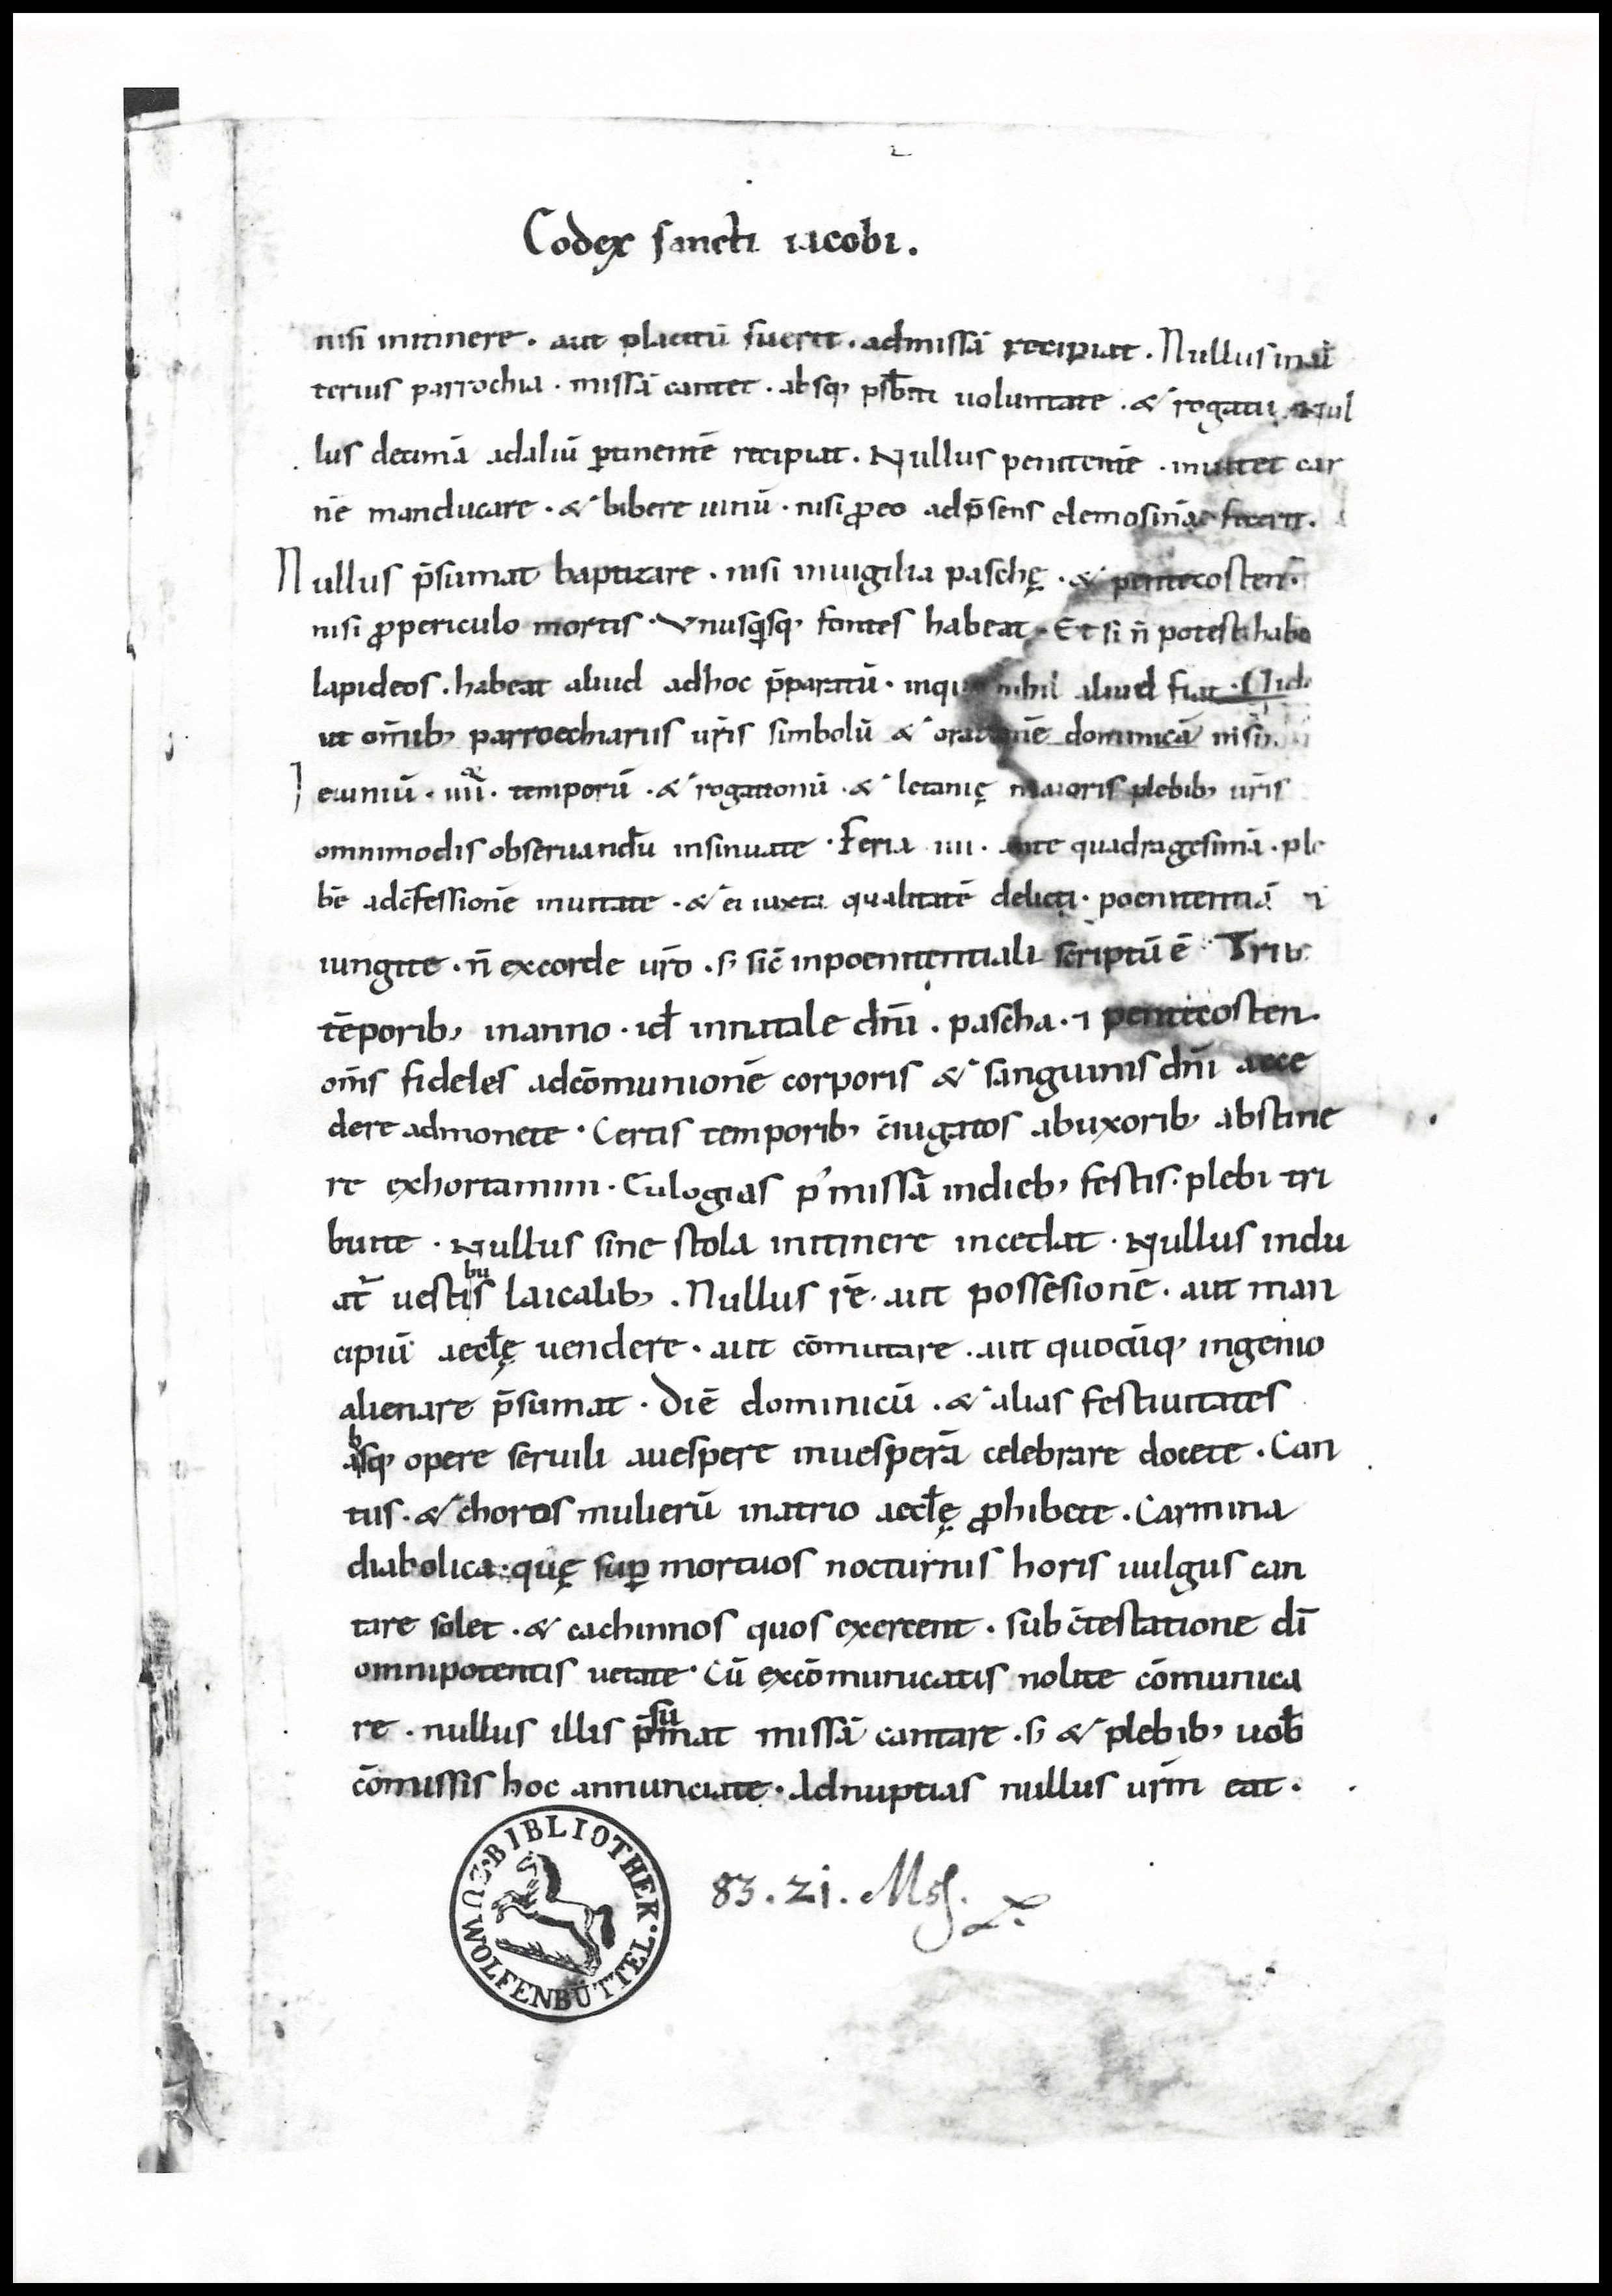 Codex sancti iacobi.
nisi initinere. aut placitū fuerit. admissā recipiat. Nullus inal
terius parrochia. missā cantet. absq; p̄sb̄iti voluntate. & rogatu. Nul
lus decimā adaliū ꝑtinentē recipiat. Nullus penitentē. inuitet car
nē manducare. & bibere uinū. nisi ꝓeo adp̄sens elemosinā fecerit.
Nullus p̄sumat baptizare. nisi inuigilia paschę. & pentecosten.
nisi ꝓpericulo mortis. Vnusq̄sq; fontes habeat. Et si n̄ potest habe
lapideos. habeat aliud adhoc p̄paratū. inquo nihil aliud fiat. Uide
ut om̄ib; parroechianis ur̄is simbolū & orationē dominicā
Ieiuniū. iiii. temporū. & rogationū. & letanię maioris plebib; ur̄is
omnimodis obseruandū insinuate. Feria iiii. ante quadragesimā. ple
bē adc̄fessionē inuitate. & ei iuxta qualitatē delicti. poenitentiā
iungite. n̄ excorde ur̄o. s; sic̄ inpoenitentiali scriptū ē. Trib;
tēporib; inanno. id̄ innatale dn̄i. pascha. ⁊ pentecosten.
om̄s fideles adcōmunionē corporis & sanguinis dn̄i acce
dere admonete. Certis temporib; c̄iugatos abuxorib; abstine
re exhortamini. Eulogias p' missā indieb; festis. plebi tri
buite. Nullus sine stola initinere incedat. Nullus indu
at̄ uestibus laicalib;. Nullus rē. aut possesionē. aut man
cipiū aecl̄ę uendere. aut cōmutare. aut quocūq; ingenio
alienare p̄sumat. Diē dominicū. & alias festiuitates
absq; opere seruili auespere inuesperā celebrare docete. Can
tus. & choros mulierū inatrio aecl̄ę ꝓhibete. Carmina
diabolica. quę suꝑ mortuos nocturnis horis uulgus can
tare solet. & cachinnos quos exercent. sub c̄testatione dī
omnipotentis uetate. Cū excōmunicatis nolite cōmunica
re. nullus illis p̄sumat missā cantare. s; & plebib; uob̄
cōmissis hoc annunciate. Adnuptias nullus ur̄m eat.
BIBLIOTHEK. WOLFENBÜTTEL
83. 21. Msſ.